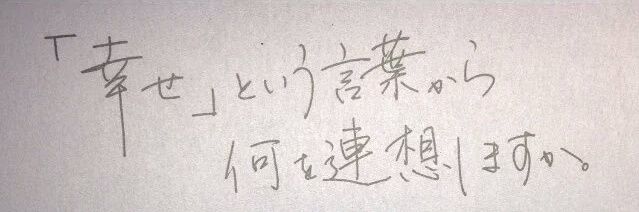 「幸せ」という言葉から
何を連想しますか。